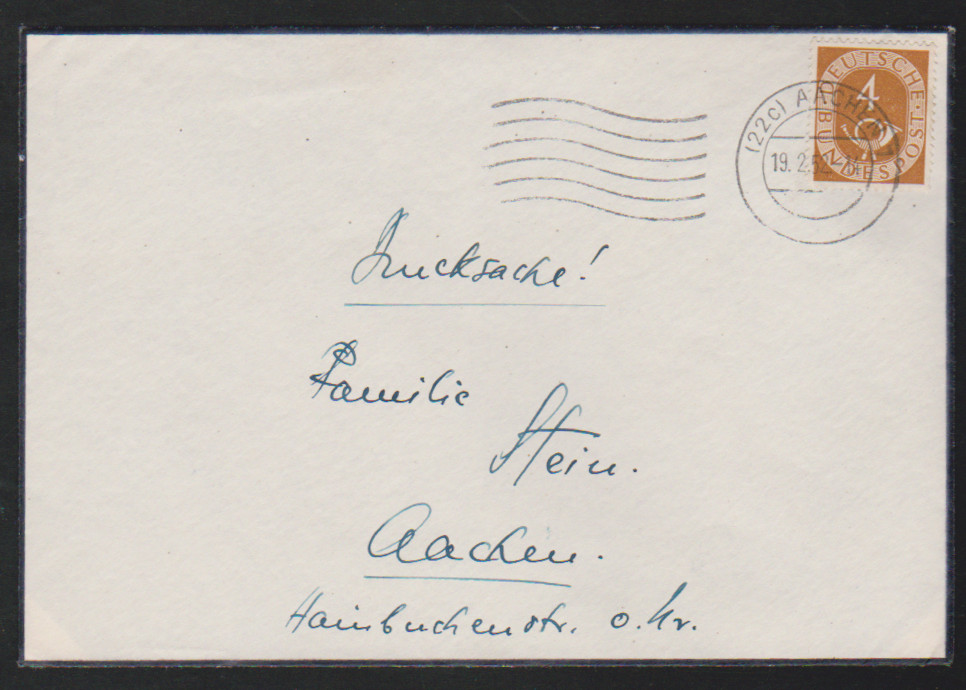 DEUTSCHE BUNDESPOST
4
(22c) AACHEN
19. 2. 52
Drucksache!
Familie
Stein.
Aachen.
Hainbuchenstr. o. Nr.